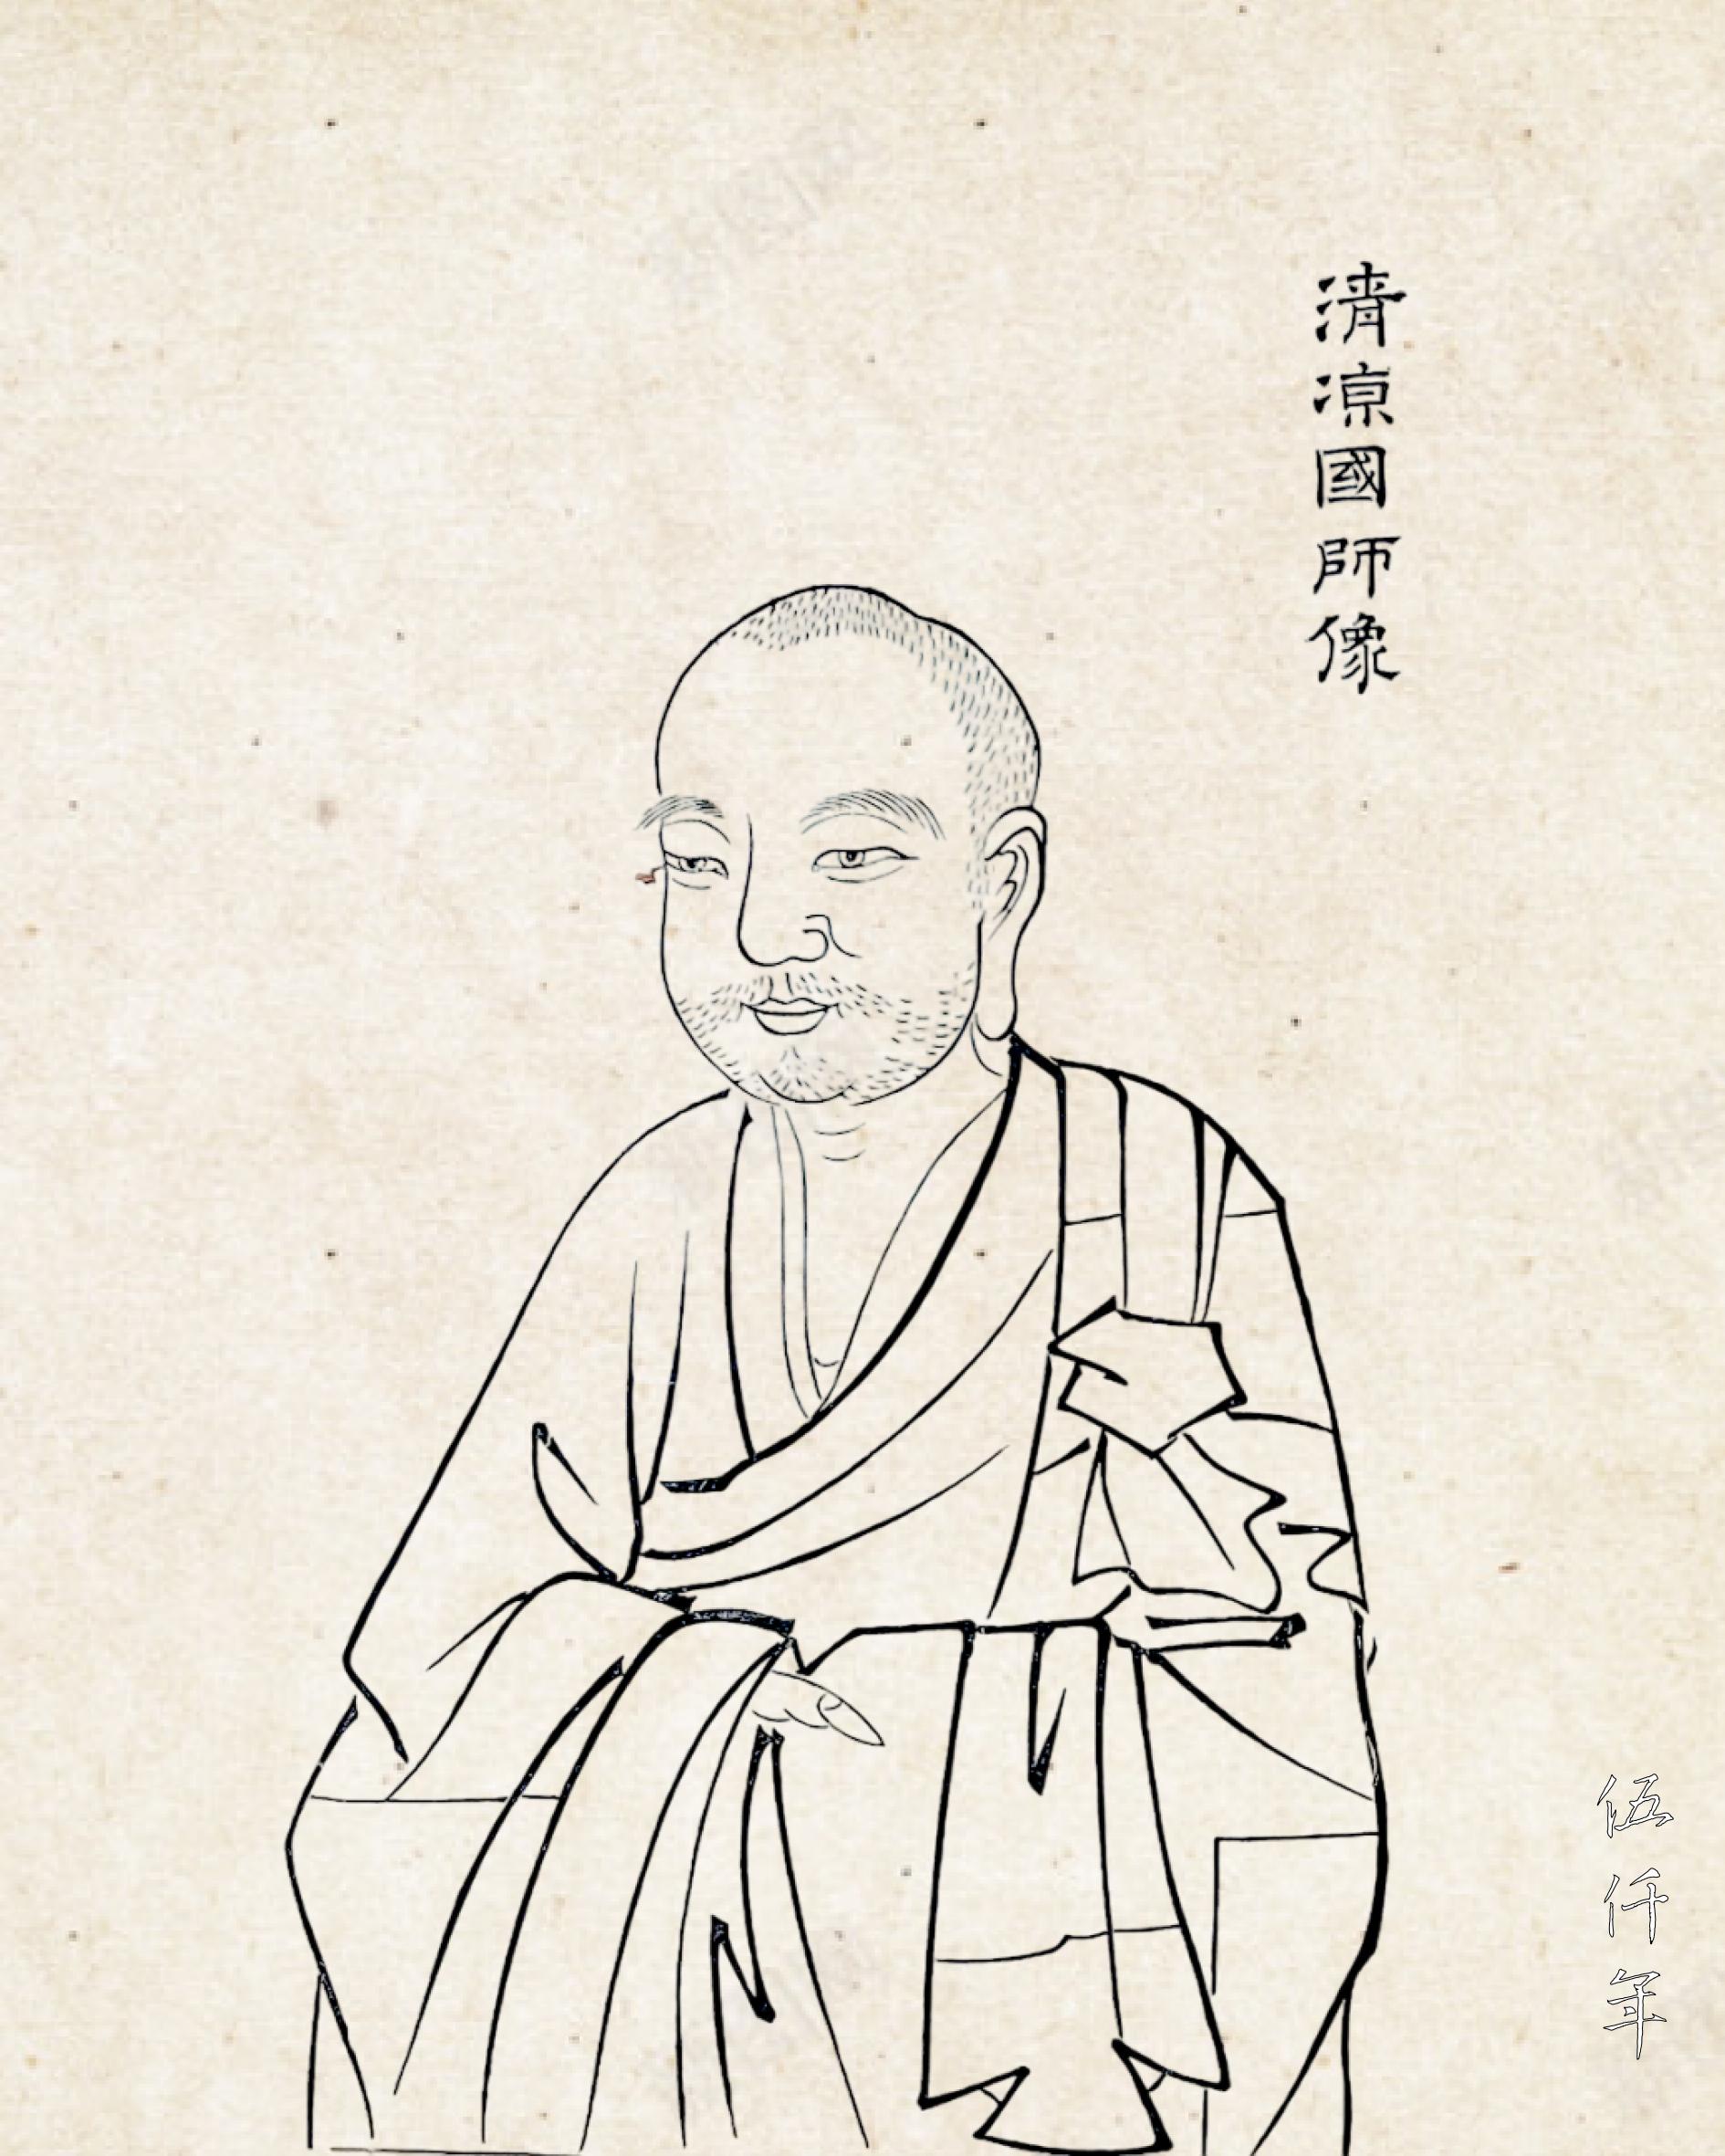 清涼國師像
伍仟年